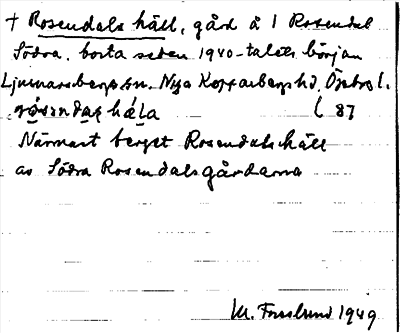 † Rosendals häll, gård å 1 Rosendal
Södra, borta sedan 1940-talets början
Ljusnarsbergs sn. Nya Kopparbergs hd. Örebro l.
( 87
Närmast berget Rosendals häll
av Södra Rosendalsgårdarna
M. Fraslund 1949